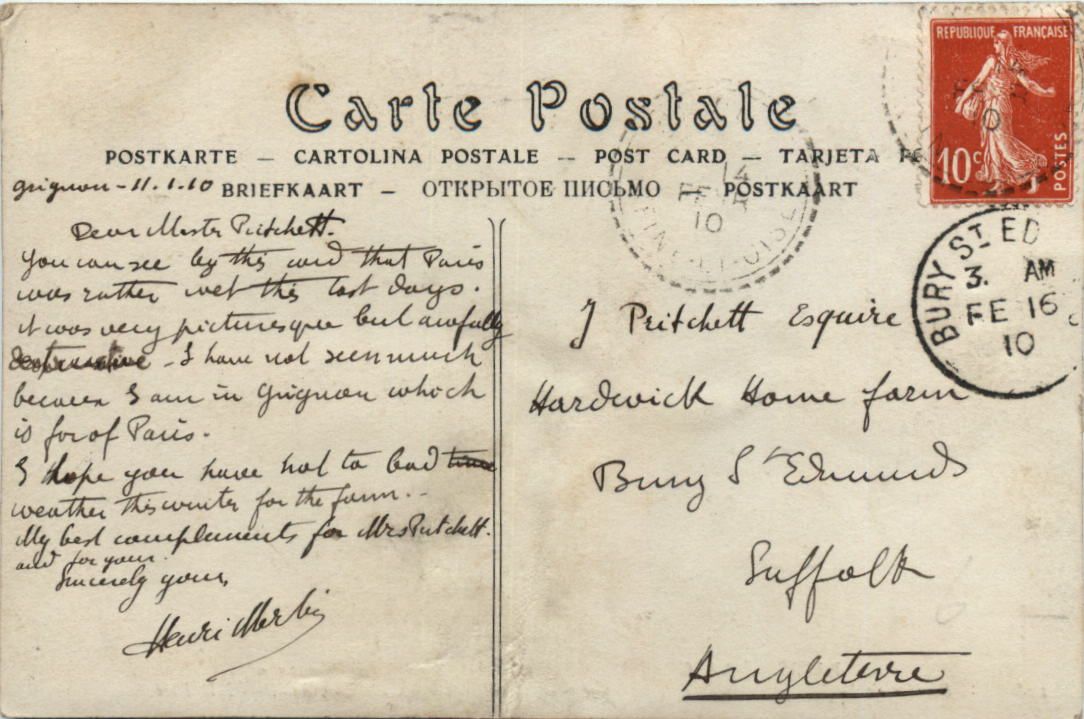 Carte Postale
POSTKARTE – CARTOLINA POSTALE -- POST CARD – TARJETA
BRIEFKAART – ОТКРЫТОЕ ПИСЬМО – POSTKAART
REPUBLIQUE FRANÇAISE
10c POSTES
14
FE
10
SEINE-ET-OISE
BURY ST ED
3. AM
FE 16
10
Grignon - 11.1.10
Dear Master Pritchett.
You can see by this card that Paris
was rather wet this last days.
it was very picturesque but awfully
destructive - I have not seen much
because I am in Grignon which
is far of Paris.
I hope you have not to bad time
weather this winter for the farm. -
My best complements for Mrs Pritchett.
and for your.
Sincerely yours
Henri
J Pritchett Esquire
Hardwick Home farm
Bury St Edmunds
Suffolk
Angleterre